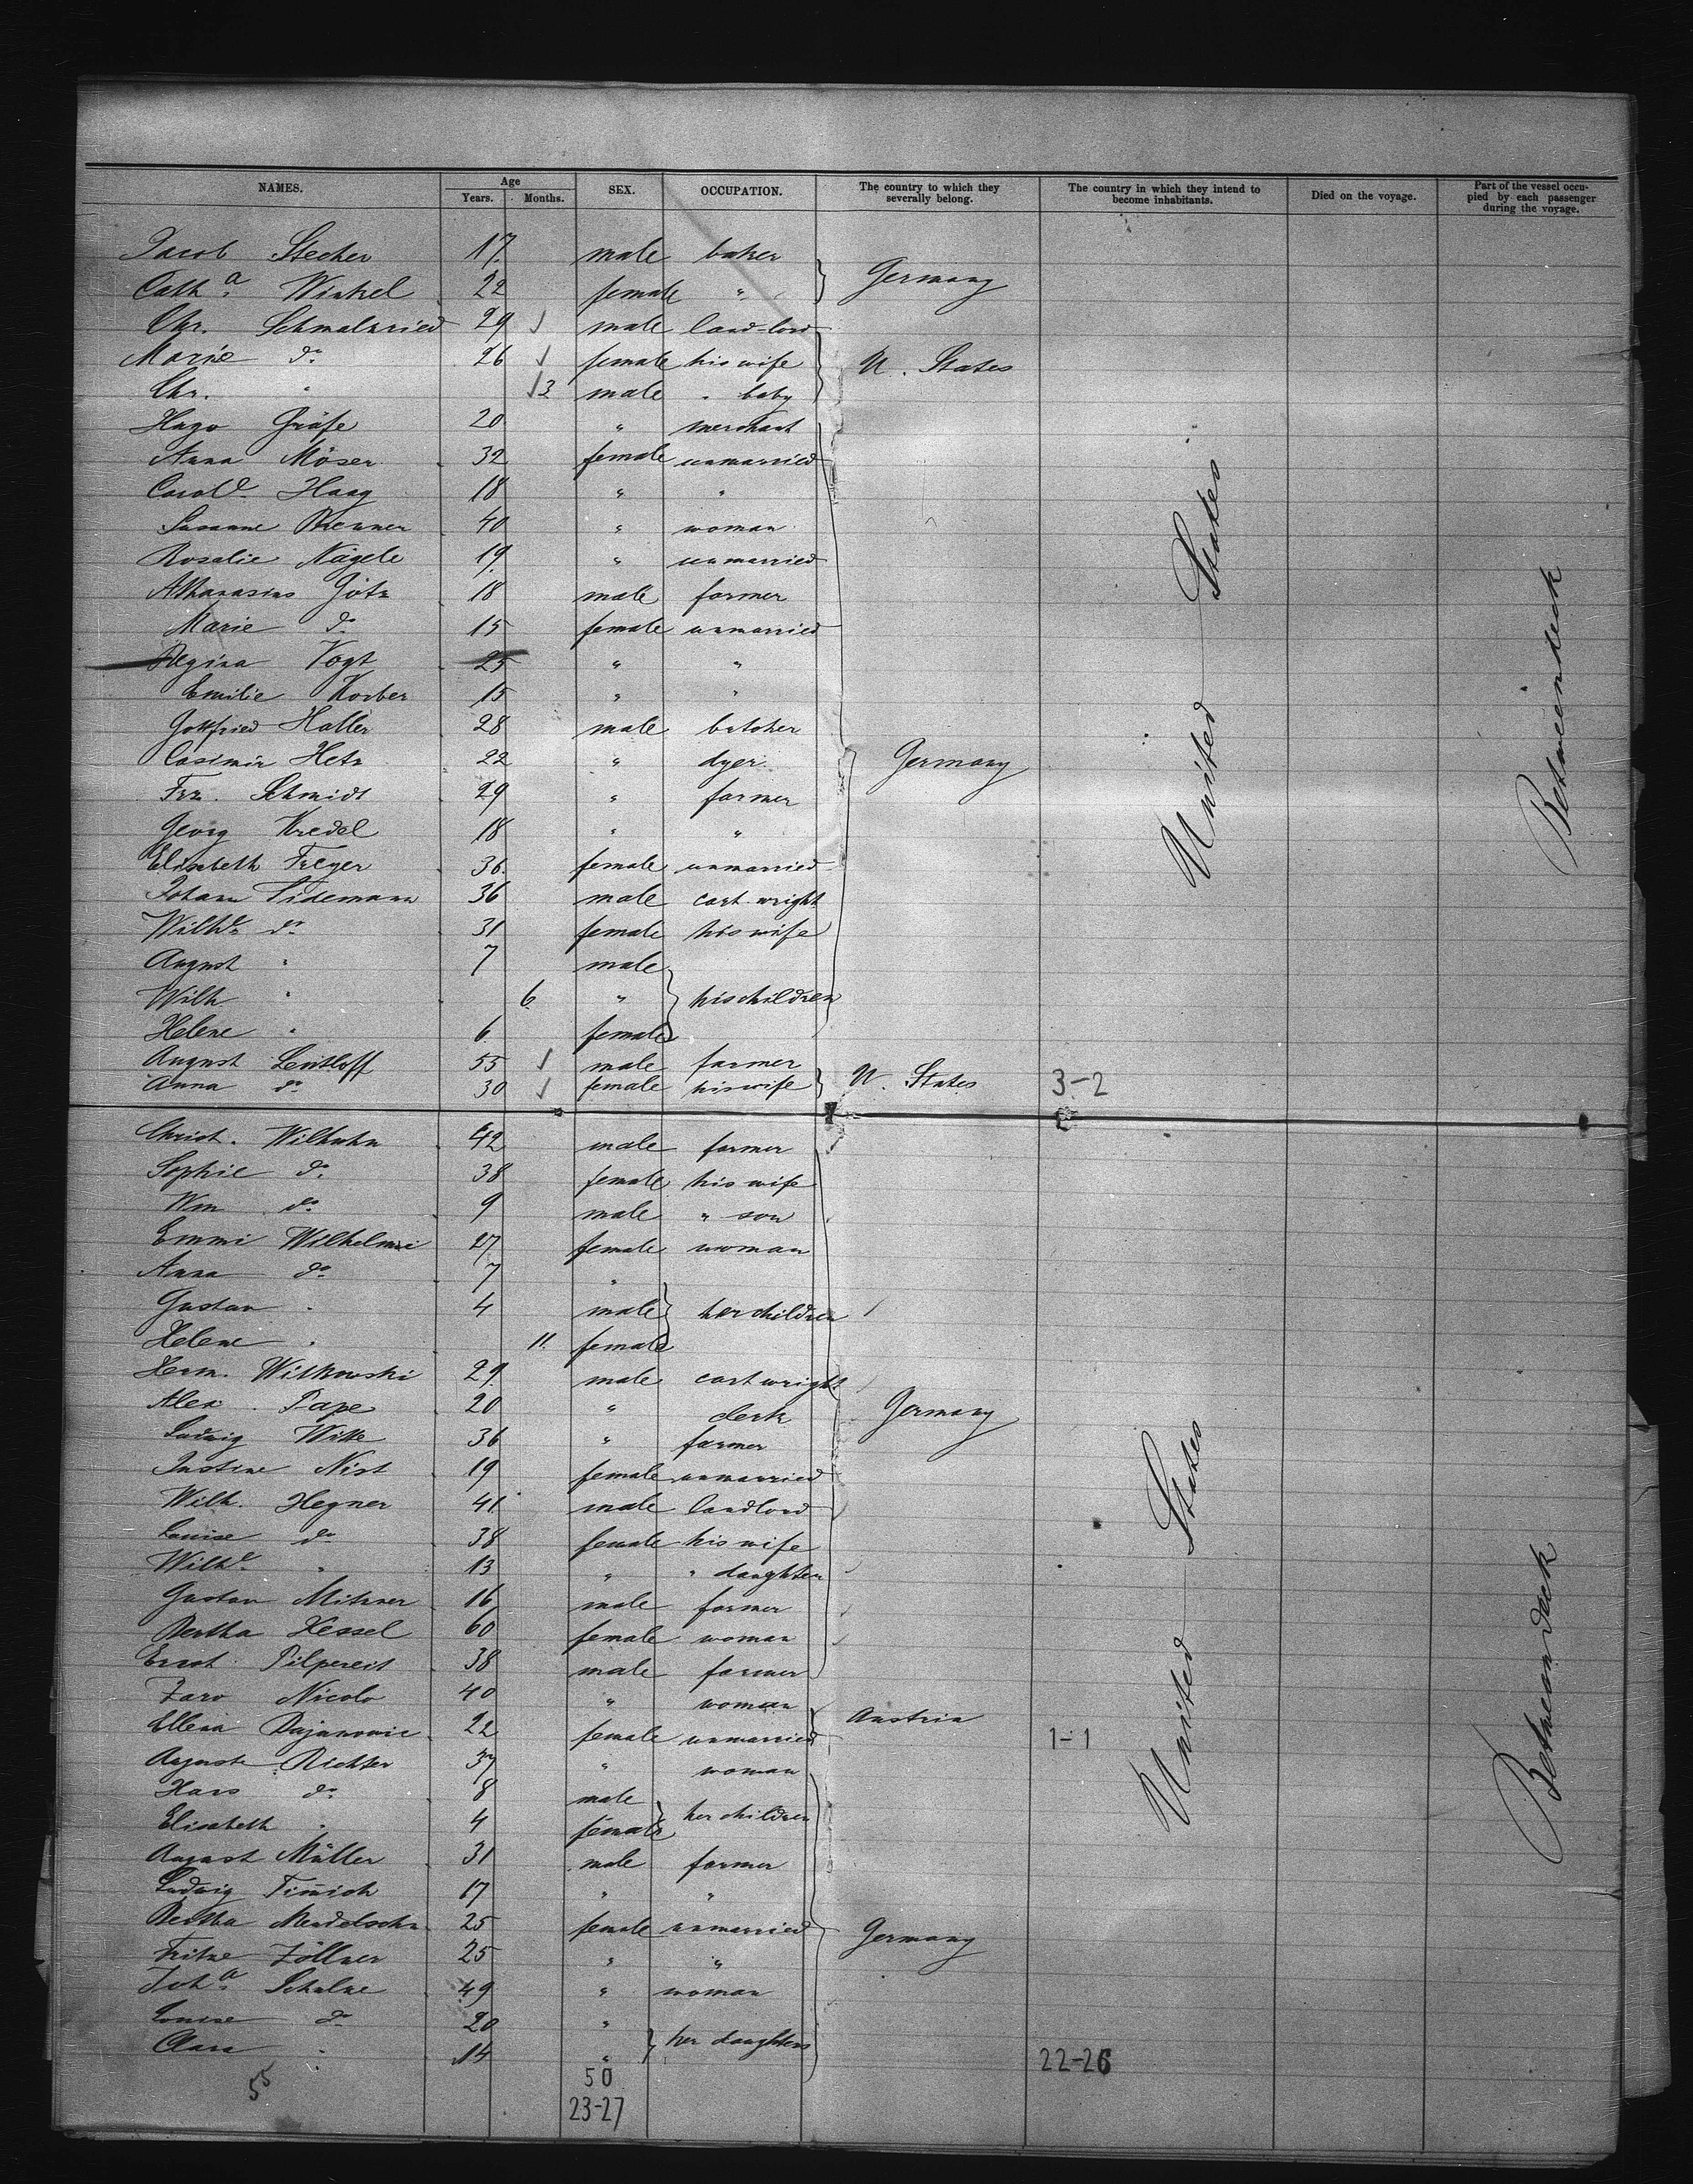 NAMES. Age SEX. OCCUPATION. The country to which they severally belong. The country in which they intend to become inhabitants. Died on the voyage. Part of the vessel occupied by each passenger during the voyage.
Years. Months.
Jacob Stecher 17 male baker
Cath.a Winkel 22 female " Germany
Chr. Schmalzried 29 male land-lord
Marie do 26 female his wife U. States
Chr. " 3 male " baby
Hugo Gräfe 20 " merchant
Anna Möser 32 female unmarried
Carol.e Haag 18 " "
Susanne Brenner 40 " woman
Rosalie Nägele 19 " unmarried
Athanasius Götz 18 male farmer
Marie do 15 female unmarried
Regina Vogt 25 " "
Emilie Korber 15 " "
Gottfried Haller 28 male butcher
Casimir Hetz 22 " dyer Germany
Frz. Schmidt 29 " farmer
Georg Kredel 18 " "
Elisabeth Freyer 36 female unmarried
Johann Tidemann 36 male cart-wright
Wilh.e do 31 female his wife
August " 7 male
Wilh " 6 " his children
Helene " 6 female
August Lentloff 55 male farmer
Anna do 30 female his wife U. States 3-2
United States
Betweendeck
Christ. Wilhuhn 42 male farmer
Sophie do 38 female his wife
Wm do 9 male " son
Emmi Wilhelmi 27 female woman
Anna do 7 "
Gustav " 4 male her children
Helene " 11 female
Herm. Witkowski 29 male cartwright
Alex. Pape 20 " clerk Germany
Ludwig Witte 36 " farmer
Justine Nist 19 female unmarried
Wilh. Hegner 41 male landlord
Louise do 38 female his wife
Wilh.e " 13 " " daughter
Gustav Mitzner 16 male farmer
Bertha Kessel 60 female woman
Ernst Pilpereit 38 male farmer
Zaro Nicolo 40 " woman
Ellena Dajanovic 22 female unmarried Austria 1-1
Auguste Richter 37 " woman
Hans do 8 male
Elisabeth " 4 female her children
August Müller 31 male farmer
Ludwig Timmich 17 " "
Bertha Mendelsohn 25 female unmarried Germany
Fritze Zöllner 25 " "
Joh.a Schulze 49 " woman
Louise do 20 "
Clara " 14 " her daughters 22-26
United States
Betweendeck
55 50
23-27